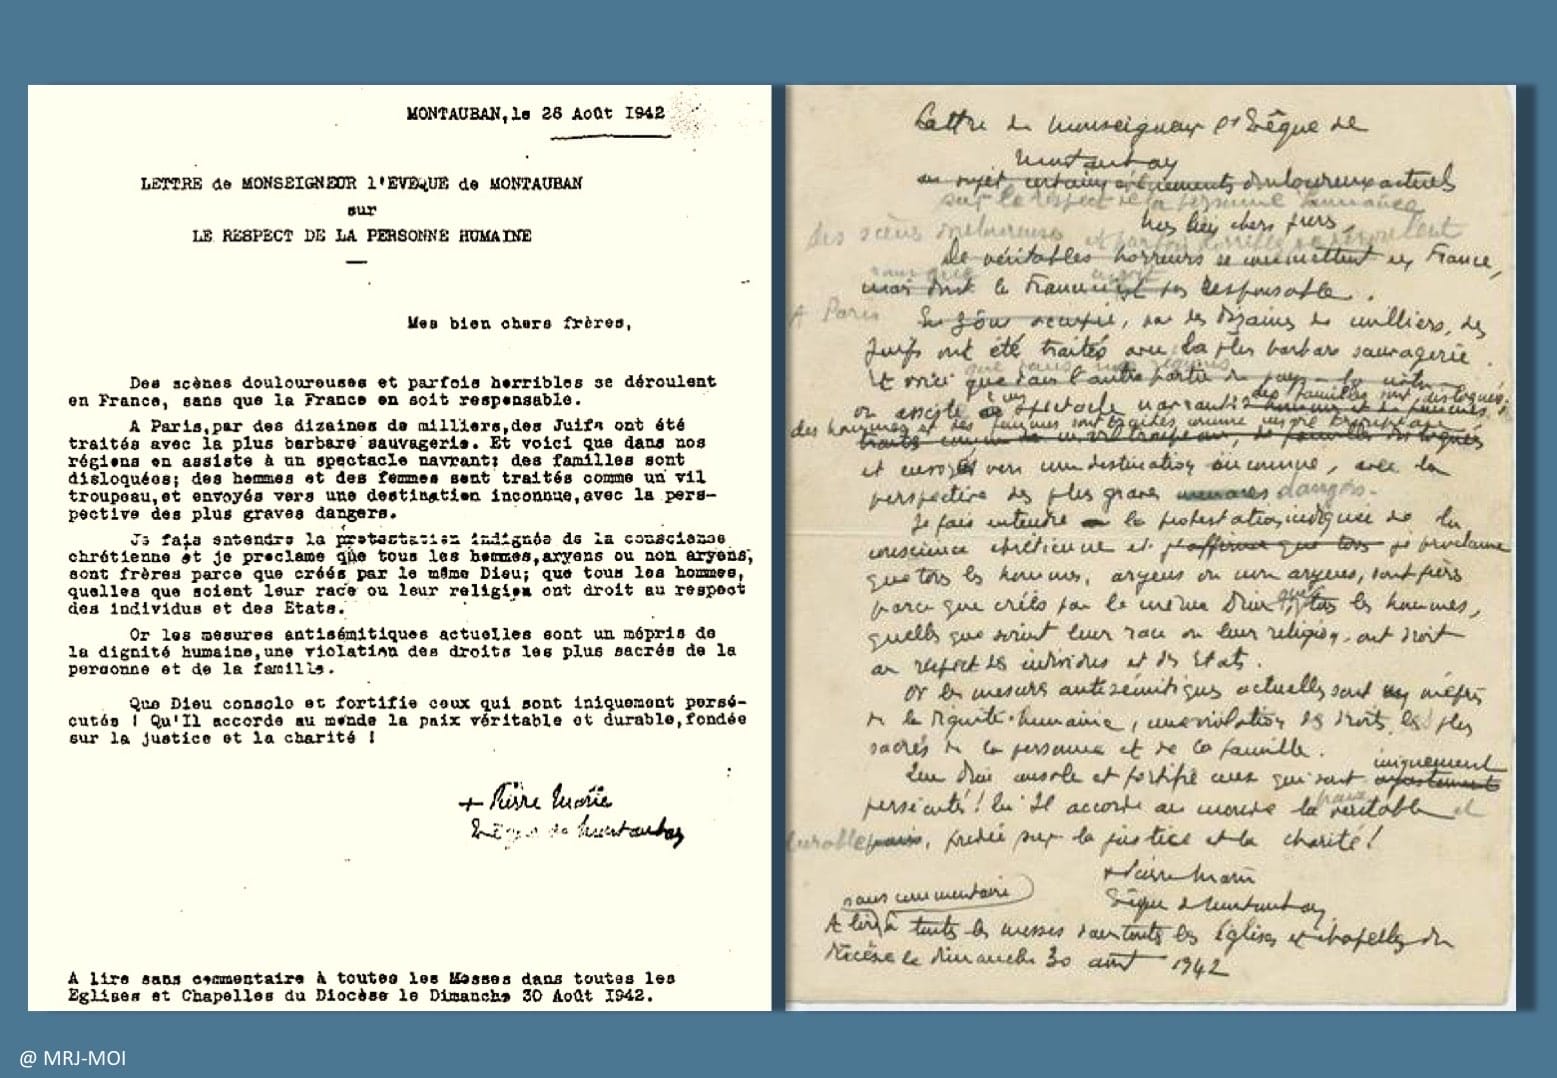 MONTAUBAN, le 26 Août 1942
LETTRE de MONSEIGNEUR l'EVEQUE de MONTAUBAN
sur
LE RESPECT DE LA PERSONNE HUMAINE
Mes bien chers frères,
Des scènes douloureuses et parfois horribles se déroulent
en France, sans que la France en soit responsable.
A Paris,par des dizaines de milliers,des Juifs ont été
traités avec la plus barbare sauvagerie. Et voici que dans nos
régions on assiste à un spectacle navrant: des familles sont
disloquées; des hommes et des femmes sont traités comme un vil
troupeau,et envoyés vers une destination inconnue,avec la pers-
pective des plus graves dangers.
Je fais entendre la protestation indignée de la conscience
chrétienne et je proclame que tous les hommes,aryens ou non aryens,
sont frères parce que créés par le même Dieu; que tous les hommes,
quelles que soient leur race ou leur religion ont droit au respect
des individus et des Etats.
Or les mesures antisémitiques actuelles sont un mépris de
la dignité humaine,une violation des droits les plus sacrés de la
personne et de la famille.
Que Dieu console et fortifie ceux qui sont iniquement persé-
cutés ! Qu'Il accorde au monde la paix véritable et durable,fondée
sur la justice et la charité !
+ Pierre Marie
Evêque de Montauban
A lire sans commentaire à toutes les Messes dans toutes les
Eglises et Chapelles du Diocèse le Dimanche 30 Août 1942.
Lettre de Monseigneur l'Evêque de
Montauban
au sujet certains événements douloureux actuels
sur le respect de la personne humaine
Mes bien chers frères,
des scènes douloureuses et parfois horribles se déroulent
De véritables horreurs se commettent en France,
sans que soit
mais dont la France n'est pas responsable.
A Paris
En zône occupée, par des dizaines de milliers, des
Juifs ont été traités avec la plus barbare sauvagerie.
que dans nos régions
Et voici que dans l'autre partie du pays
des familles sont disloquées
on assiste à un spectacle navrant
des hommes et des femmes sont traités comme un vil troupeau
traités comme un vil troupeau, des familles disloquées
et envoyés vers une destination inconnue, avec la
perspective des plus graves menaces dangers.
Je fais entendre la protestation indignée de la
conscience chrétienne et j'affirme que tous je proclame
que tous les hommes, aryens ou non aryens, sont frères
parce que créés par le même Dieu, que tous les hommes,
quelles que soient leur race ou leur religion, ont droit
au respect des individus et des Etats.
Or les mesures antisémitiques actuelles sont un mépris
de la dignité humaine, une violation des droits les plus
sacrés de la personne et de la famille.
iniquement
Que Dieu console et fortifie ceux qui sont injustement
paix
persécutés ! Qu'Il accorde au monde la véritable et
durable paix, fondée sur la justice et la charité !
+ Pierre Marie
Evêque de Montauban
sans commentaire
A lire à toutes les messes dans toutes les Eglises et chapelles du
Diocèse le dimanche 30 août 1942
@ MRJ-MOI